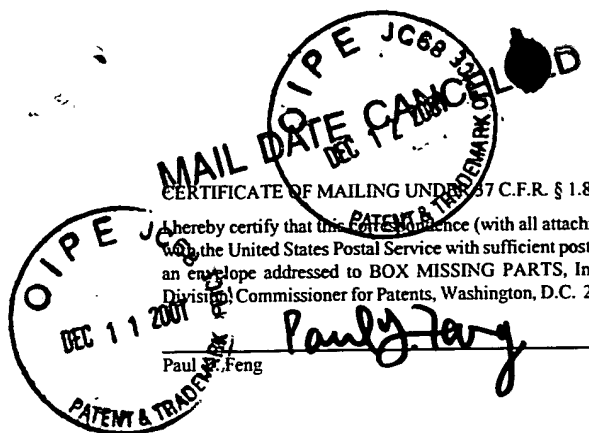 OIPE JC68
DEC 12 2001
PATENT & TRADEMARK OFFICE
MAIL DATE
CERTIFICATE OF MAILING UNDER 37 C.F.R. § 1.8
I hereby certify that this correspondence (with all attach
with the United States Postal Service with sufficient post
an envelope addressed to BOX MISSING PARTS, In
Division, Commissioner for Patents, Washington, D.C. 2
OIPE
DEC 11 2001
PATENT & TRADEMARK
Paul J. Feng
Paul Feng